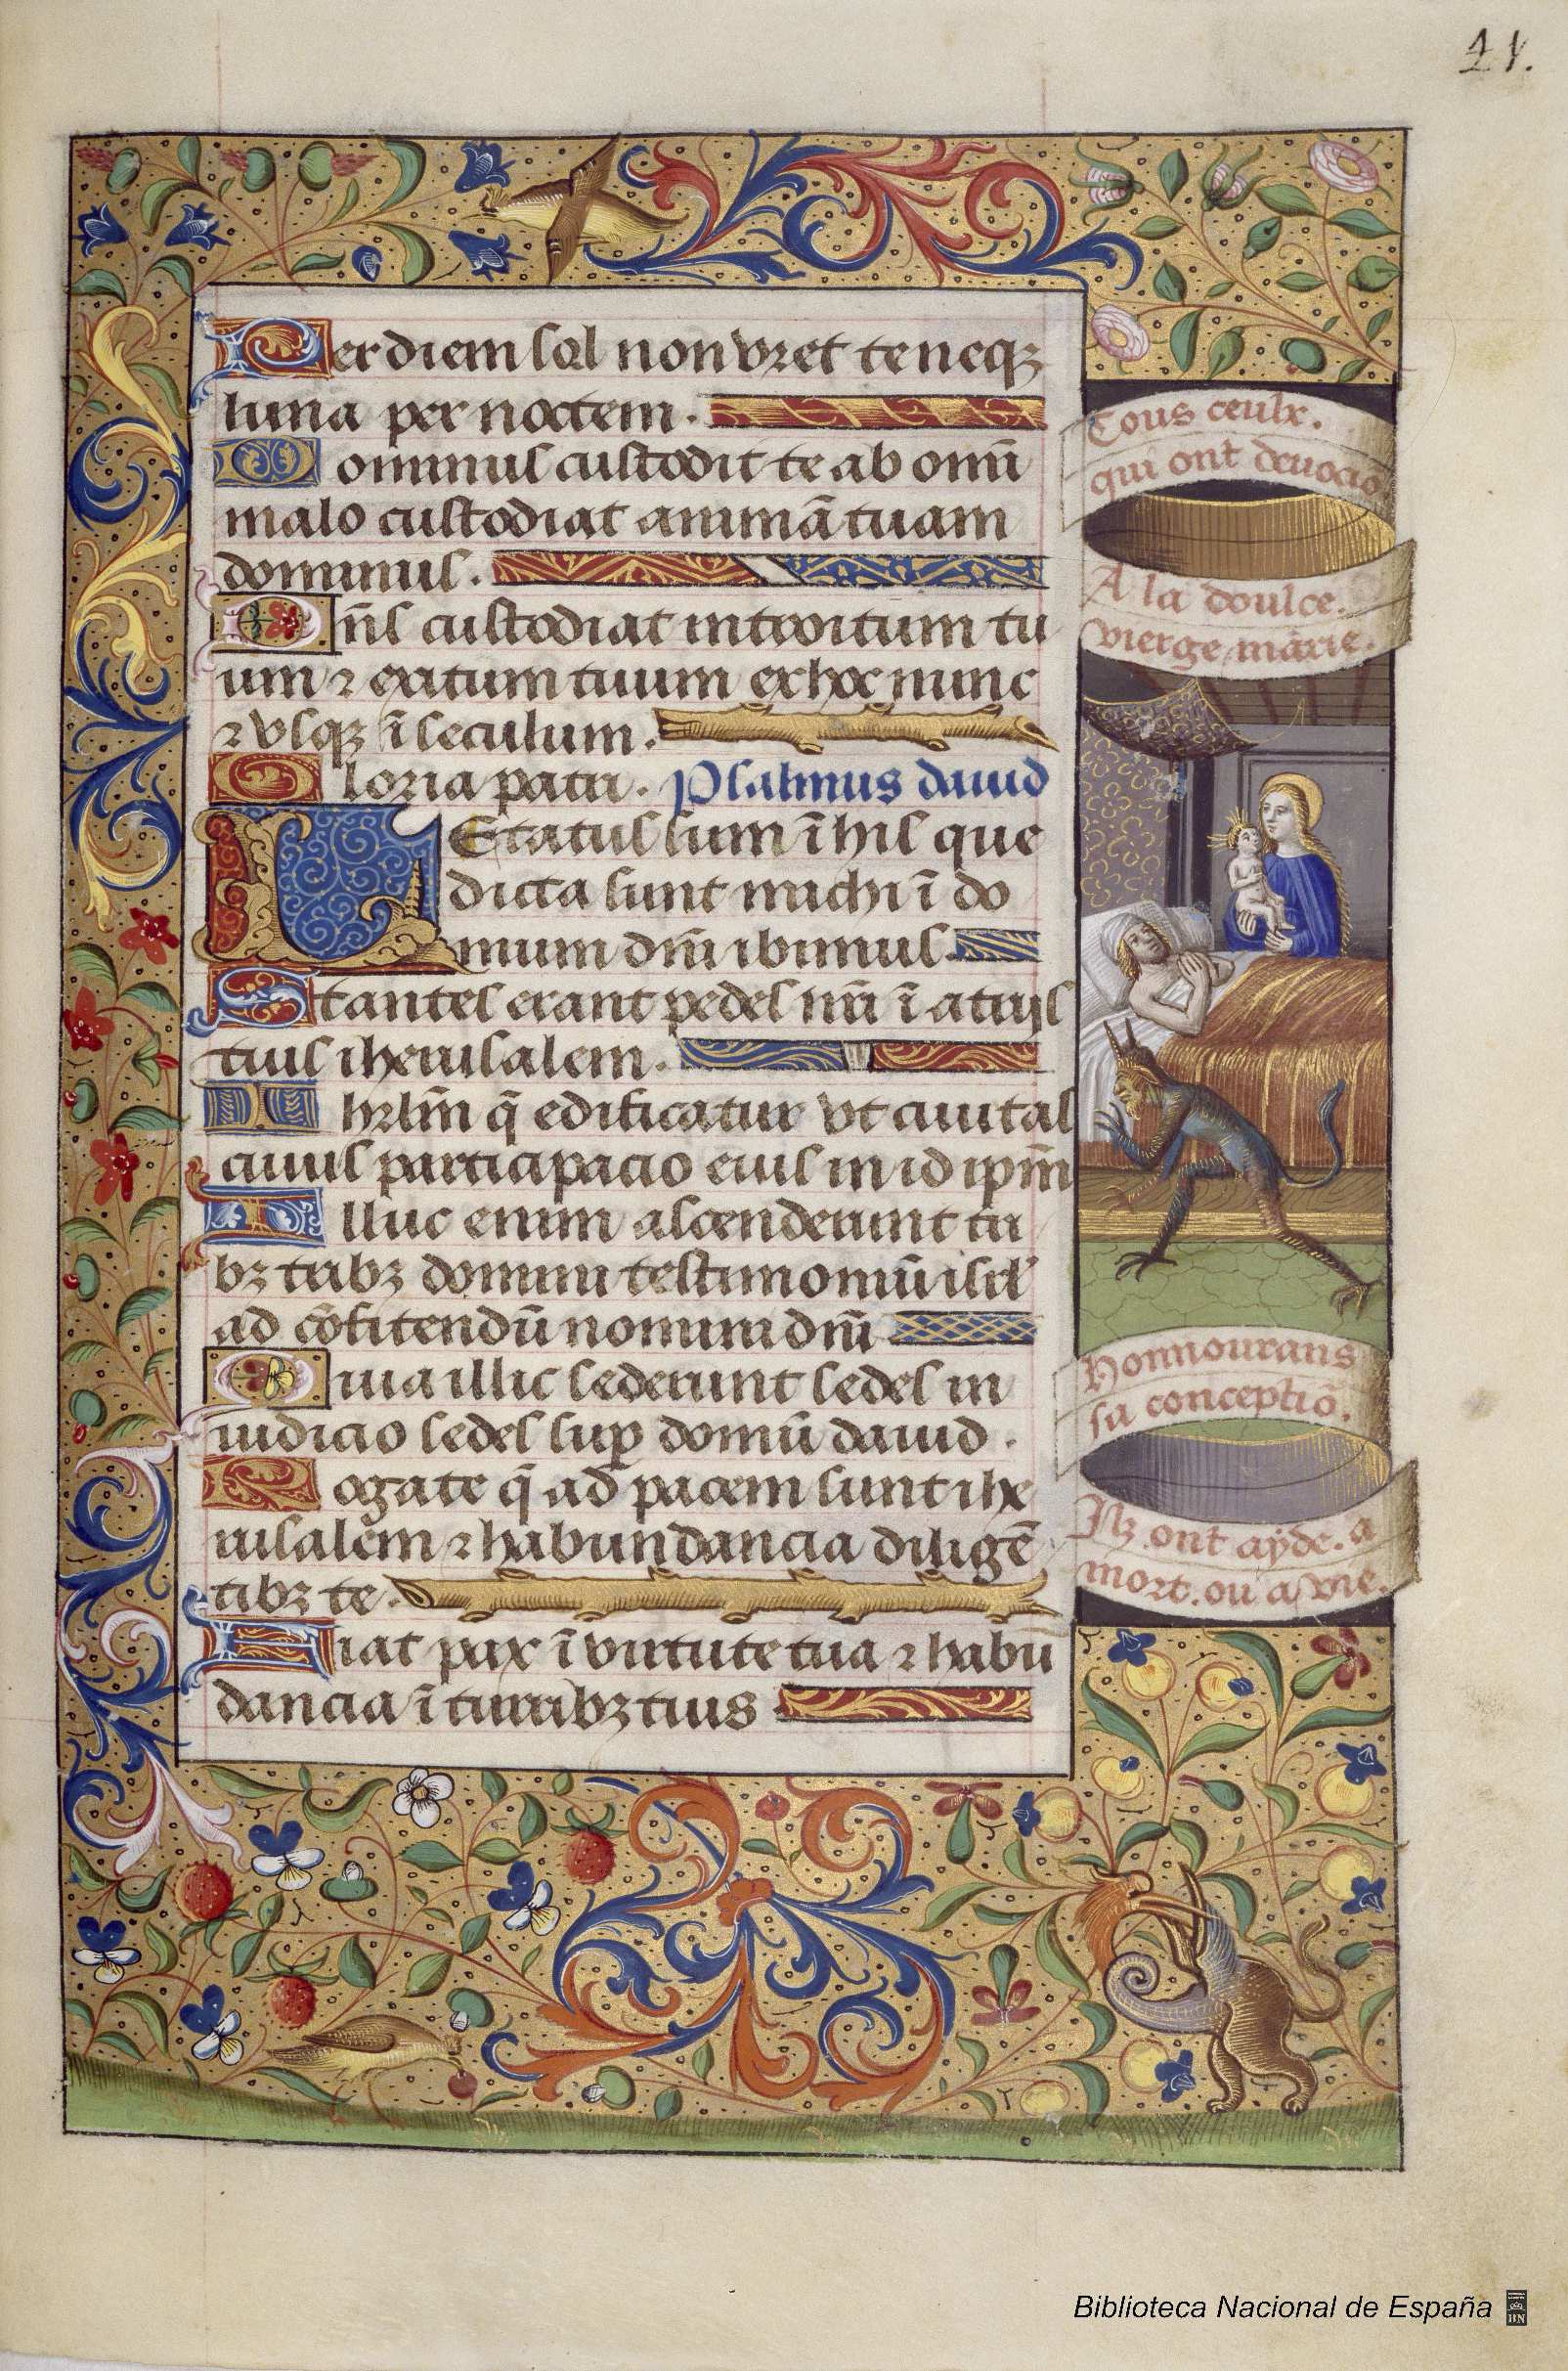 21.
Per diem sol non vret te neqꝫ
luna per noctem.
Dominus custodit te ab omī
malo custodiat animā tuam
dominus.
Dn̄s custodiat introitum tu
um ⁊ exitum tuum ex hoc nunc
⁊ vsqꝫ ī seculum.
Gloria patri. Psalmus dauid
LEtatus sum ī his que
dicta sunt michi ī do
mum dn̄i ibimus.
Stantes erant pedes nr̄i ī atrijs
tuis iherusalem.
Ihrlm̄ q̄ edificatur vt ciuitas
cuius participacio eius in id ipm̄
Illuc enim ascenderunt tri
bꝫ tribꝫ domini testimoniū isrl'
ad cōfitendū nomini dn̄i
Quia illic sederunt sedes in
iudicio sedes suꝑ domū dauid.
Rogate q̄ ad pacem sunt ihe
rusalem ⁊ habundancia diligē
tibꝫ te.
Fiat pax ī virtute tua ⁊ habū
dancia ī turribꝫ tuis
Tous ceulx.
qui ont deuociō
A la doulce.
vierge marie.
Honnourans
sa conceptiō.
Ilz ont ayde. a
mort. ou a vie.
Biblioteca Nacional de España
BN